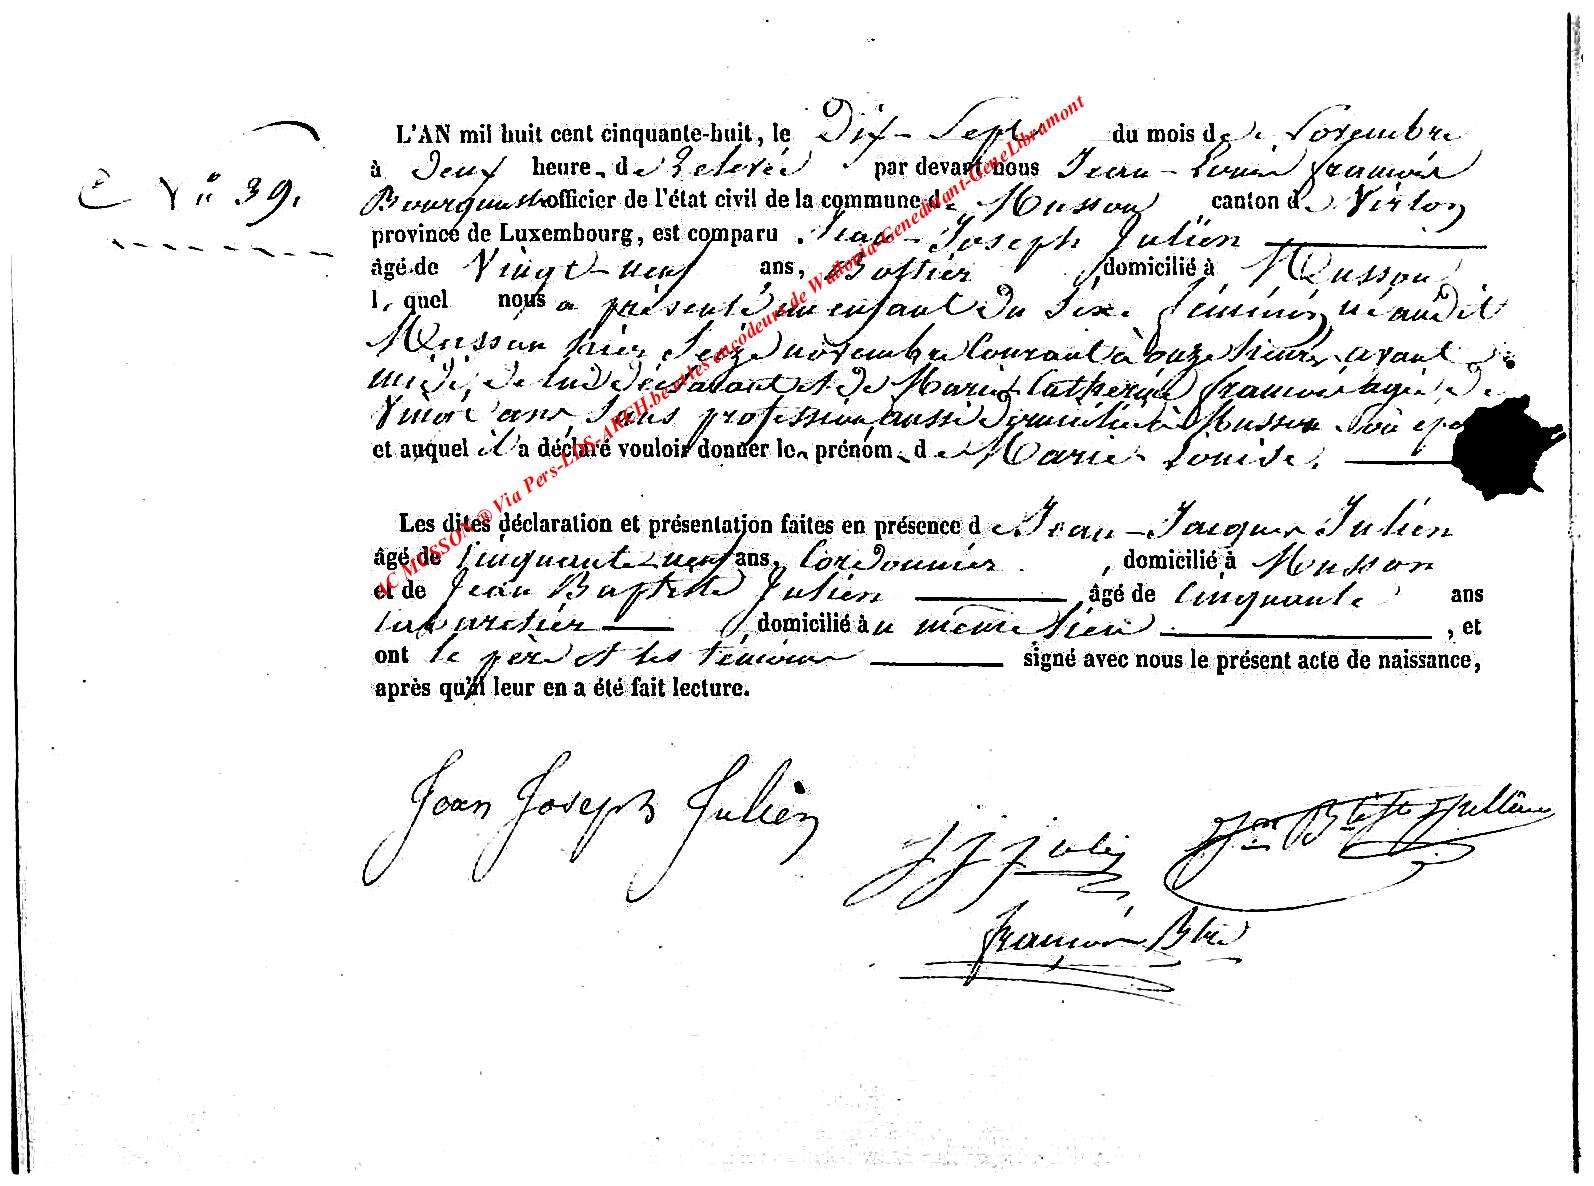 L'AN mil huit cent cinquante-huit, le Dix-Sept du mois de Novembre
N° 39.
à Deux heure, de Relevée par devant nous Jean-Louis françois
Bourguemtre officier de l'état civil de la commune de Musson canton de Virton
province de Luxembourg, est comparu Jean-Joseph Julien
âgé de Vingt-neuf ans, domicilié à Musson
lequel nous a présenté un enfant du sexe féminin, né audit
Musson hier Seize novembre Courant à onze heures avant
midi, de lui déclarant et de Marie Catherine françois agée de
Vingt ans, Sans profession, aussi domiciliée à Musson Son
et auquel il a déclaré vouloir donner le prénom de Marie Louise.
Les dites déclaration et présentation faites en présence de Jean-Jacques Julien
âgé de Cinquante-neuf ans, Cordonnier, domicilié à Musson
et de Jean Baptiste Julien âgé de Cinquante ans
domicilié au même lieu, et
ont le père et les témoins signé avec nous le présent acte de naissance,
après qu'il leur en a été fait lecture.
Jean Joseph Julien
J J julien
Jn Bte Jullien
françois Btre
AC MUSSON ® Via Pers-LDS-ARCH.be et les encodeurs de Wallonia-Genedinant-GeneLibramont